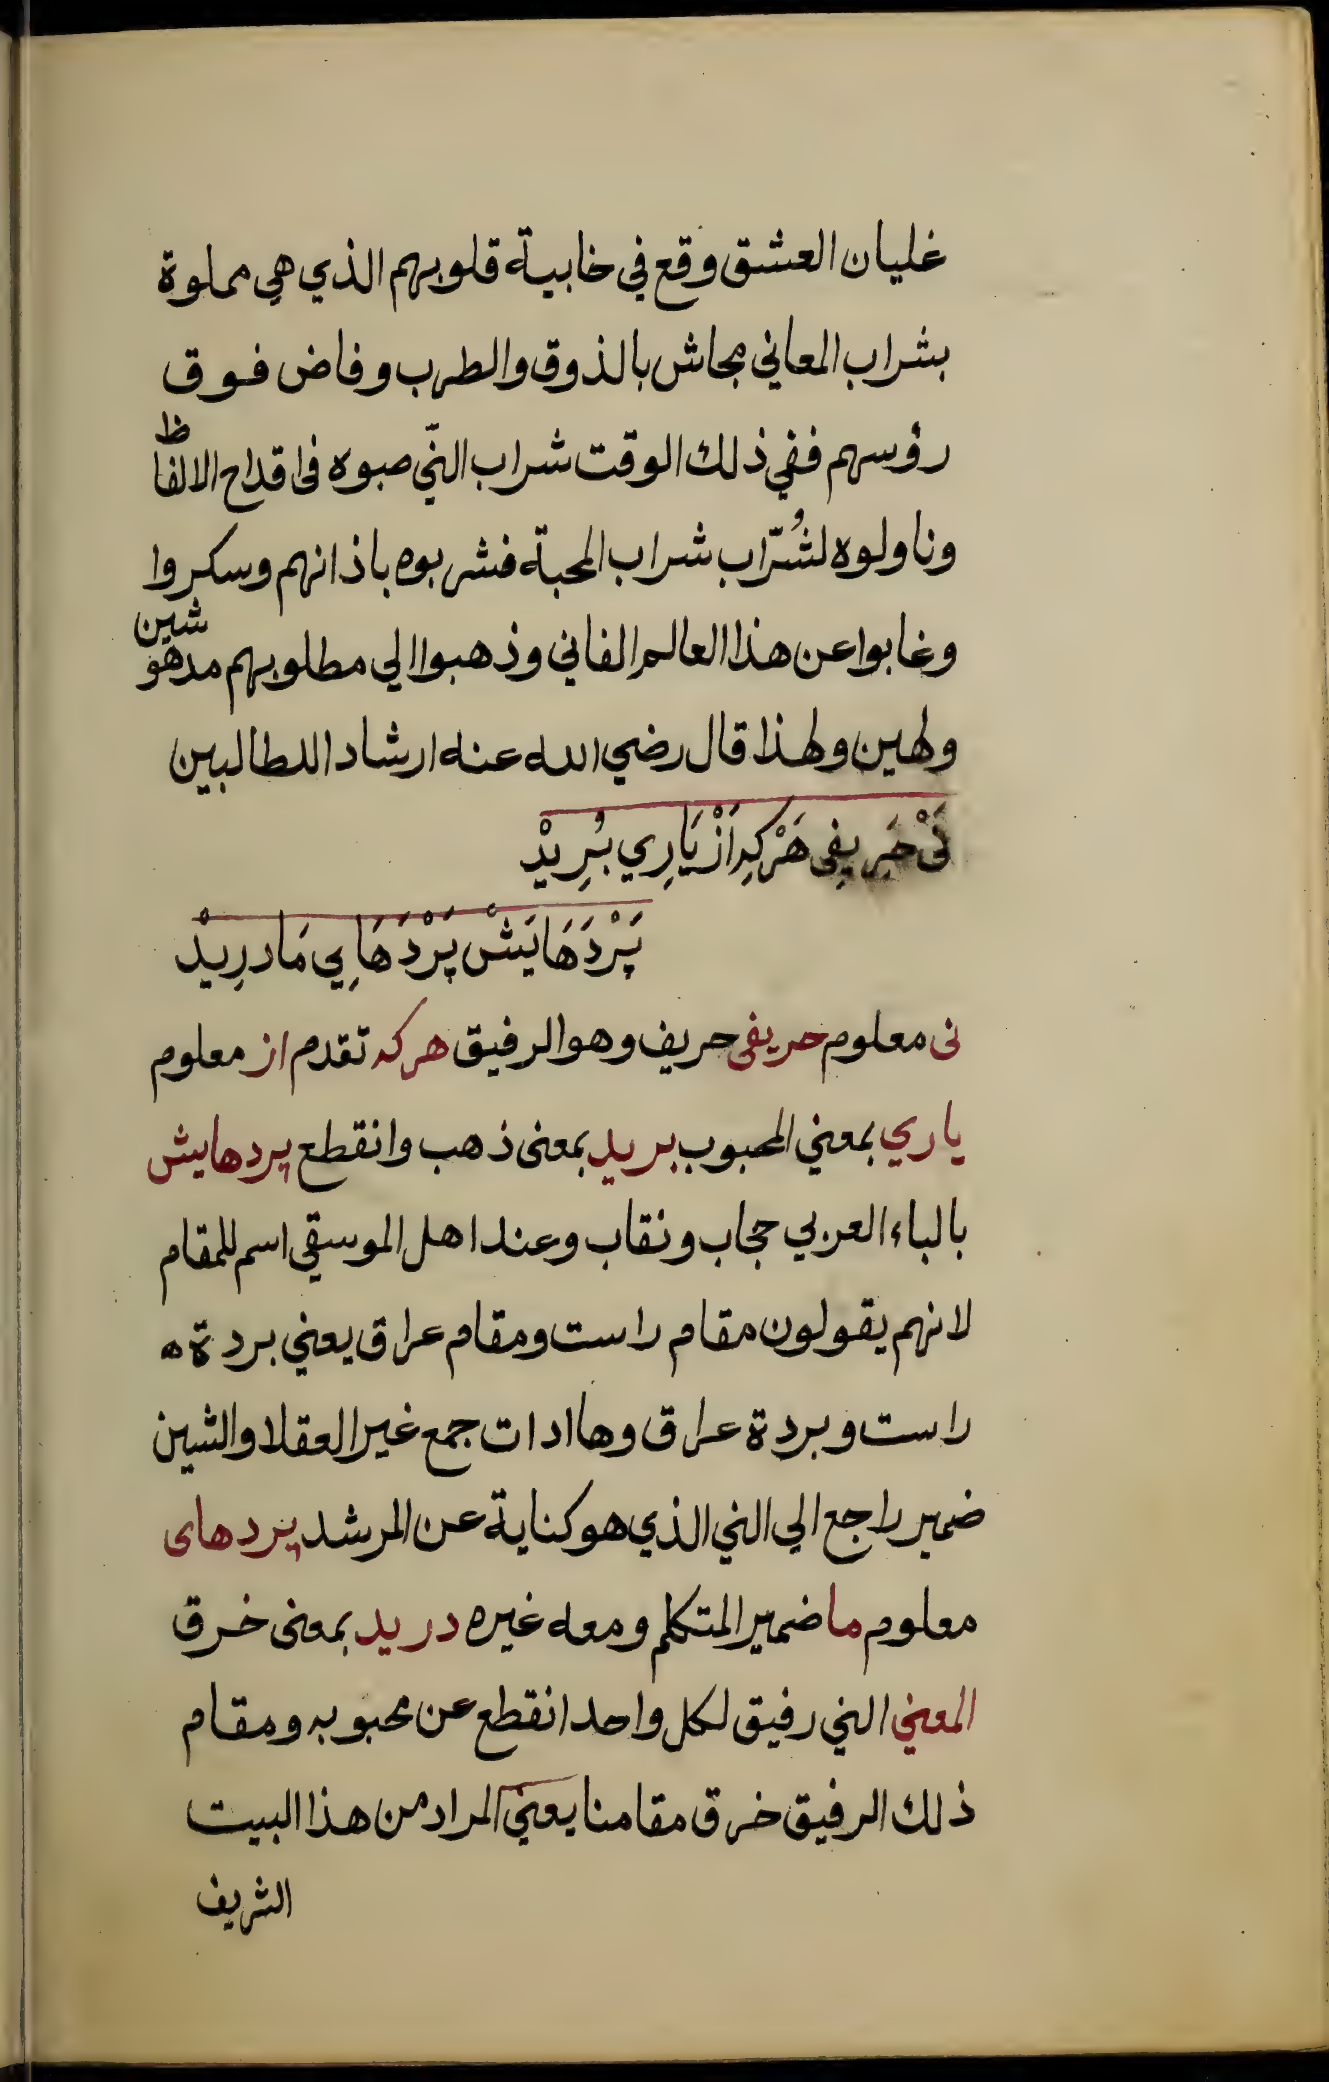 غليان العشق وقع في خابية قلوبهم الذي هي مملوة
بشراب المعاني مجاش بالذوق والطرب وفاض فوق
رؤسهم ففي ذلك الوقت شراب النّي صبوه في اقداح الالفاظ
وناولوه لشُرّاب شراب المحبة فشربوه باذانهم وسكروا
وغابوا عن هذا العالم الفاني وذهبوا الي مطلوبهم مدهوشين
ولهين ولهذا قال رضي الله عنه ارشادا للطالبين
نَىْ حَرِيفِى هَرْكِه اَزْ يَارِي بُرِيدْ
پَرْدَهَايَشْ پَرْدَهَايِ مَا دَرِيدْ
نى معلوم حريفى حريف وهو الرفيق هركه تقدم از معلوم
ياري بمعني المحبوب بريد بمعنى ذهب وانقطع پردهايش
بالباء العربي حجاب ونقاب وعند اهل الموسقي اسم للمقام
لانهم يقولون مقام راست ومقام عراق يعني بردة ه
راست وبردة عراق وها ادات جمع غير العقلا والشين
ضمير راجع الي الني الذي هو كناية عن المرشد پردهاى
معلوم ما ضمير المتكلم ومعه غيره دريد بمعنى خرق
المعني الني رفيق لكل واحد انقطع عن محبوبه ومقام
ذلك الرفيق خرق مقامنا يعني المراد من هذا البيت
الشريف